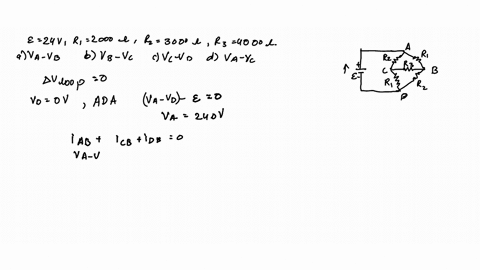 ε=24V, R1=2000 Ω, R2=3000 Ω, R3=4000 Ω.
a) VA-VB b) VB-VC c) VC-VD d) VA-VC
ΔVloop=0
VD=0V, ADA (VA-VD)-ε=0
VA=240V
IAB+ ICB+IDB=0
VA-V
A
R2 R1
+ C R3 B
ε-
R1 R2
D